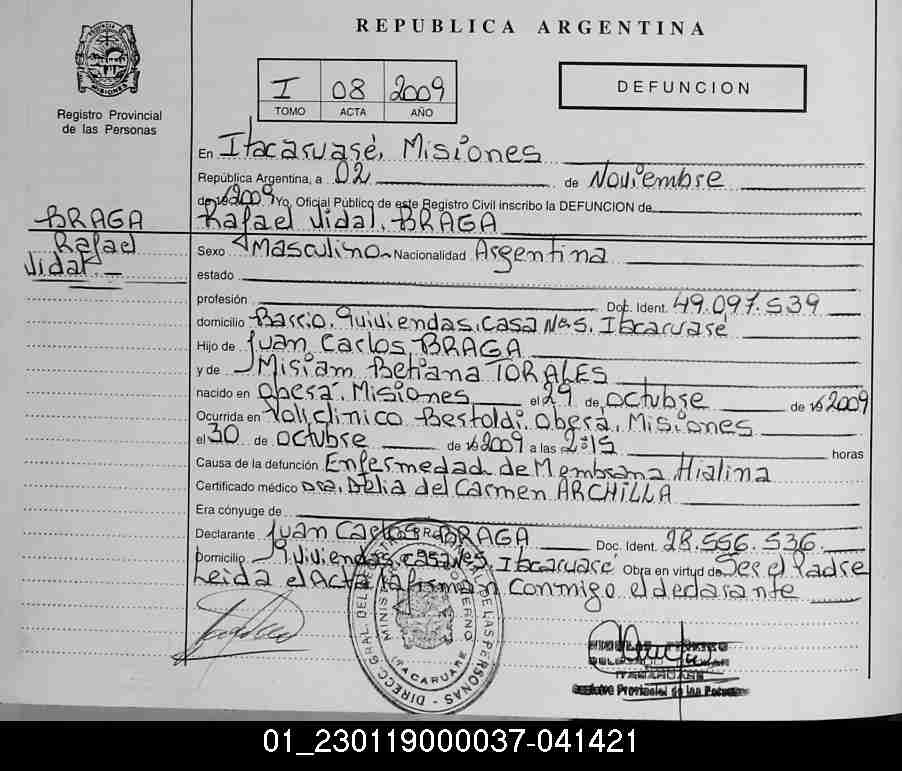 REPUBLICA ARGENTINA
PROVINCIA DE MISIONES
Registro Provincial
de las Personas
I 08 2009
TOMO ACTA AÑO
DEFUNCION
En Itacaruasé, Misiones
República Argentina, a 02 de Noviembre
de 2009 Yo, Oficial Público de este Registro Civil inscribo la DEFUNCION de
BRAGA
Rafael
Vidal.
Rafael Vidal, BRAGA
Sexo Masculino Nacionalidad Argentina
estado
profesión Doc. Ident. 49.097.539
domicilio Barrio. 9 viviendas. casa Nº5. Itacaruasé
Hijo de Juan Carlos BRAGA
y de Miriam Betiana TORALES
nacido en Oberá. Misiones el 29 de octubre de 2009
Ocurrida en Policlinico Bertoldi. Oberá. Misiones
el 30 de octubre de 2009 a las 2:15 horas
Causa de la defunción Enfermedad de Membrana Hialina
Certificado médico Dra. Delia del Carmen ARCHILLA
Era cónyuge de
Declarante Juan Carlos BRAGA Doc. Ident. 28.556.536
domicilio 9 viviendas. casa Nº5. Itacaruaré Obra en virtud de Ser el Padre
Leida el Acta la firman conmigo el declarante
DIRECC. GRAL. DEL REG. PROVINCIAL DE LAS PERSONAS
MINIST. GOBIERNO
ITACARUARE
ITACARUARE
Registro Provincial de las Personas
01_230119000037-041421